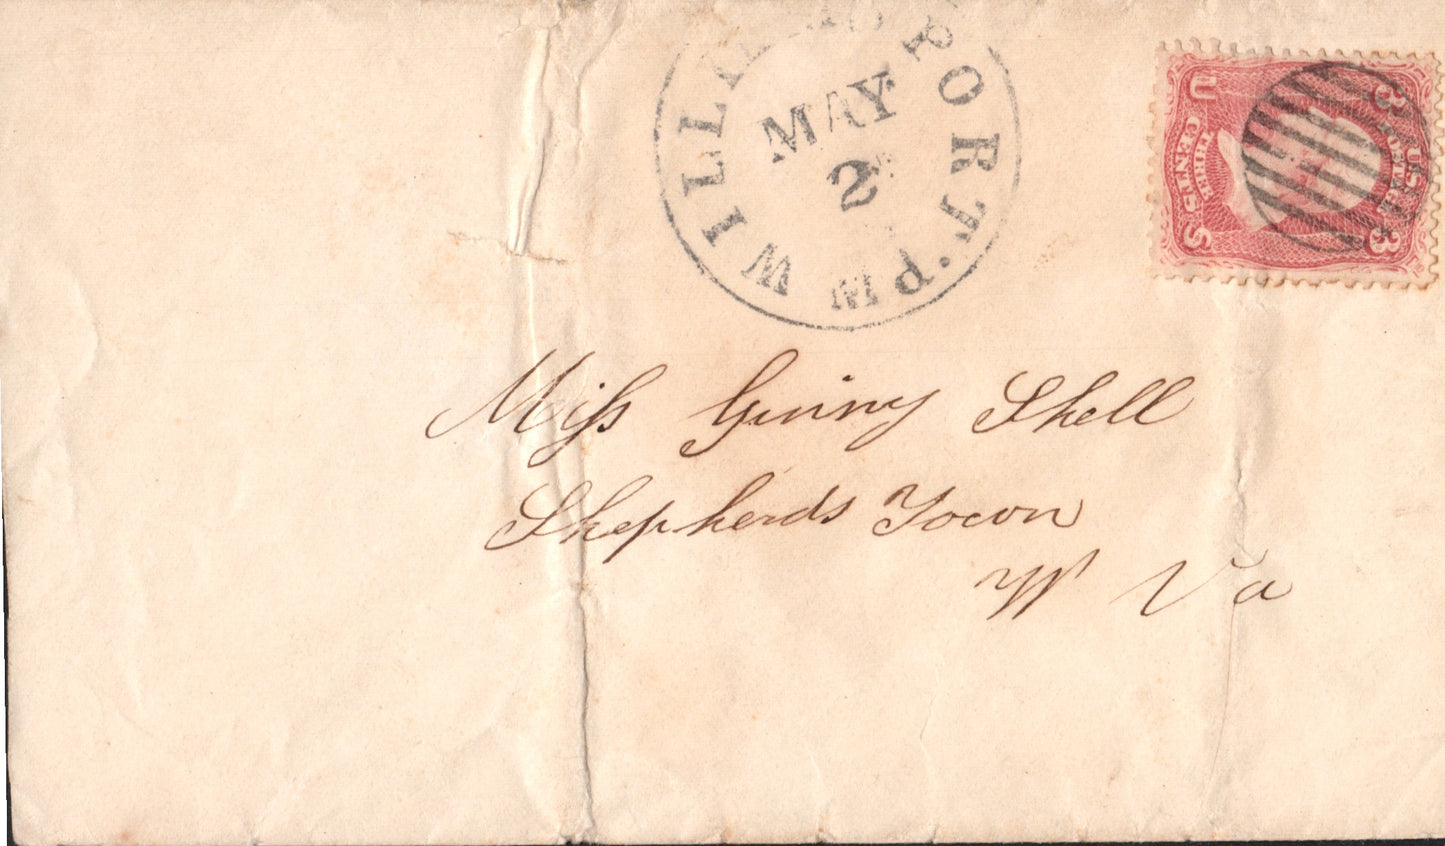 WILLIAMSPORT. Md
MAY
2
U.S. POSTAGE
3 3
THREE
CENTS
U S
Miss Ginny Shell
Shepherds Town
W Va